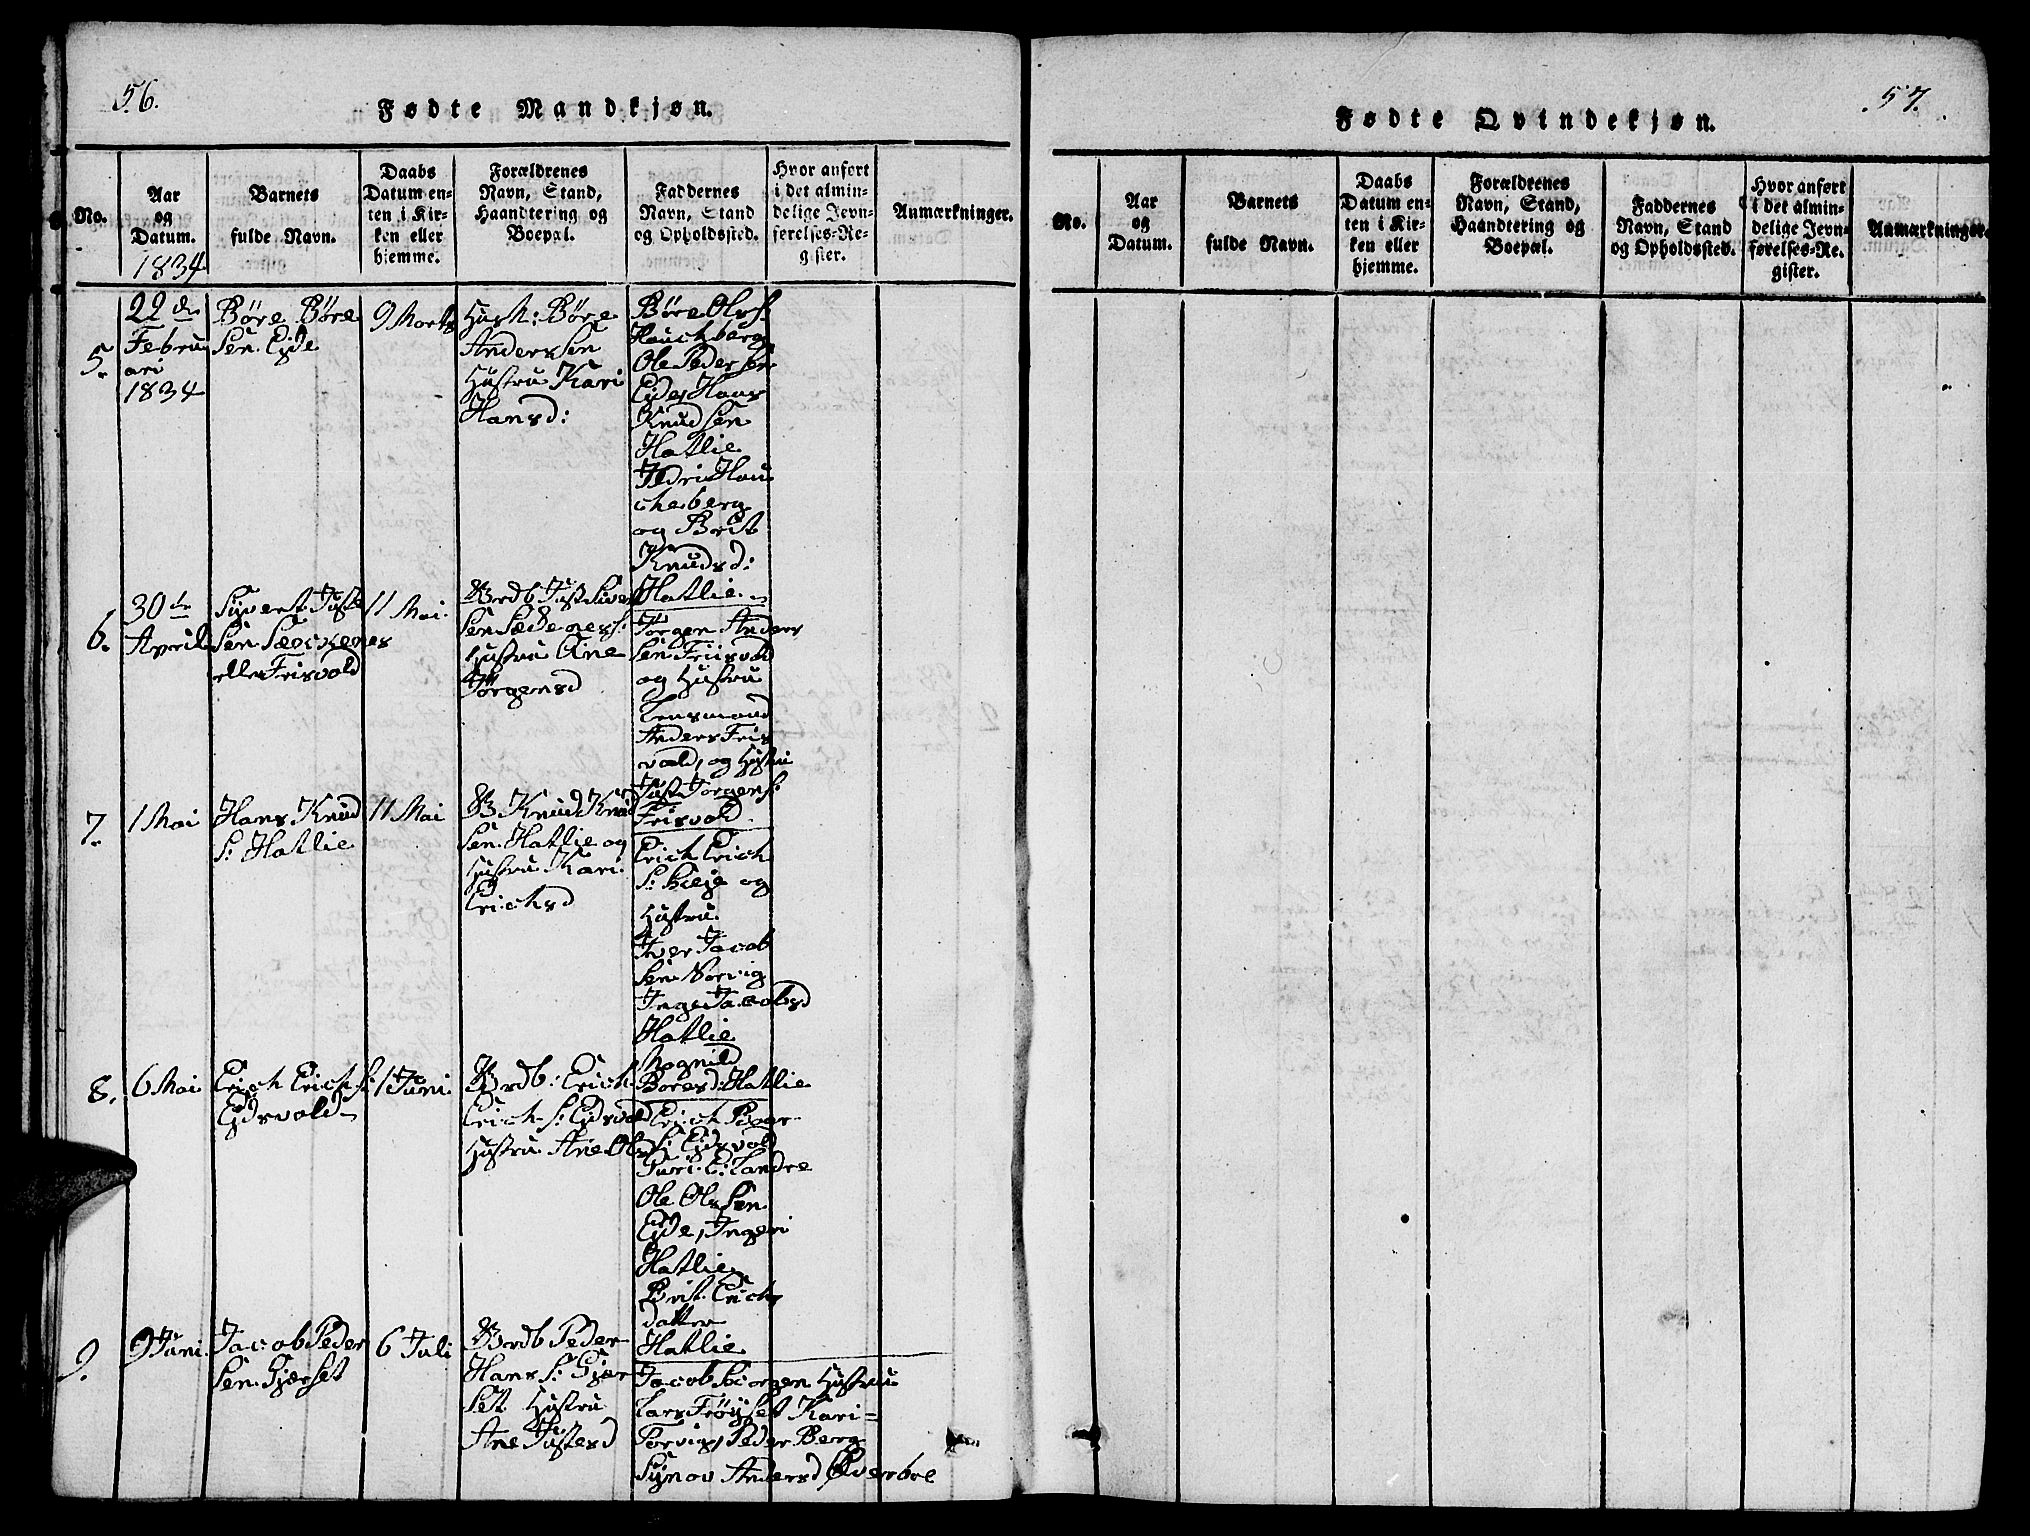 56.
Fødte Mandkjøn.
No.
Aar
og
Datum.
1834
Barnets
fulde Navn.
Daabs
Datum en-
ten i Kir-
ken eller
hjemme.
Forældrenes
Navn, Stand,
Haandtering og
Boepæl.
Faddernes
Navn, Stand
og Opholdssted.
Hvor anført
i det almin-
delige Jevn-
førelses-Re-
gister.
Anmærkninger.
5.
22de
Febru
ari
1834
Böre Böre
Sen. Eide
9 Marts
Husm: Böre
Anders Sen
Hustru Kari
Hansd:
Böre Ols:
Hauchberg
Ole Peder Sen
Eide, Hans
Knud Sen
Hatlie
Hau
cheberg
og Borit
Knudsd:
Hatlie.
6.
30de
April
Syvert Juste
Sen
eller Frisvold
11 Mai.
Brdb Just Siver
Sen
Hustru Ane
Jörgensd
Jörgen Anders
Sen Friisvold
og Hustru
Anders Fris
vold, og Hustru
Just Jörgens:
Frisvold.
7.
1 Mai
Hans Knud
S: Hatlie
11 Mai
B Knud Knud
Sen. Hatlie og
Hustru Kari
Erichsd
Erich Erich
S: og
Hustru
Iver Jacob
Sen Norvig
Inge Jacobsd
Hatlie
Magnild
Boresd: Hatlie
8.
6 Mai
Erich Erich S:
Eidsvold
1 Juni
Brdb: Erich
Erich S: Eidsvold
Hustru Ane Ols
Erich Peder
S: Eidsvold
Guri E: Tandre
Ole Ols Sen
Eide, Ingeri
Hatlie
Brit. Erichs
datter
Hatlie
9.
9 Juni.
Jacob Peder
Sen. Gjerset
6 Juli
Brdb Peder
Hans S: Gjer
Set Hustru
Ane Justesd
Jacob Hustru
Lars Fröyset Kari
Torvig, Peder Berg
Synov Andersd Øverboe
57.
Fødte Qvindekjøn.
No.
Aar
og
Datum.
Barnets
fulde Navn.
Daabs
Datum en-
ten i Kir-
ken eller
hjemme.
Forældrenes
Navn, Stand,
Haandtering og
Boepæl.
Faddernes
Navn, Stand
og Opholdssted.
Hvor anført
i det almin-
delige Jevn-
førelses-Re-
gister.
Anmærkninger.